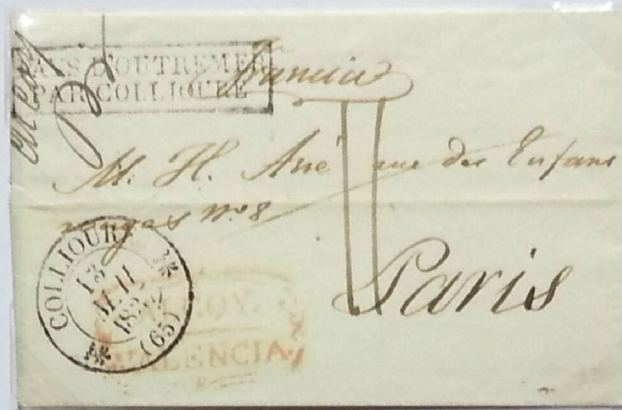 Alcoy
PAYS D'OUTREMER
PAR COLLIOURE
Francia
M. H. Arié rue des Enfans
rouges Nº 8
Paris
COLLIOURE
13
(65)
ALCOY.
VALENCIA